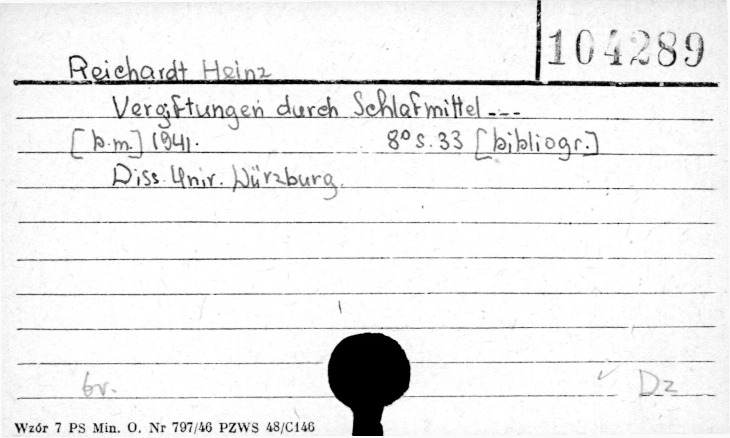 104289
Reichardt Heinz
Vergiftungen durch Schlafmittel ---
[b.m.] 1941. 8° s. 33 [bibliogr.]
Diss. Univ. Würzburg.
br. Dz
Wzór 7 PS Min. O. Nr 797/46 PZWS 48/C146